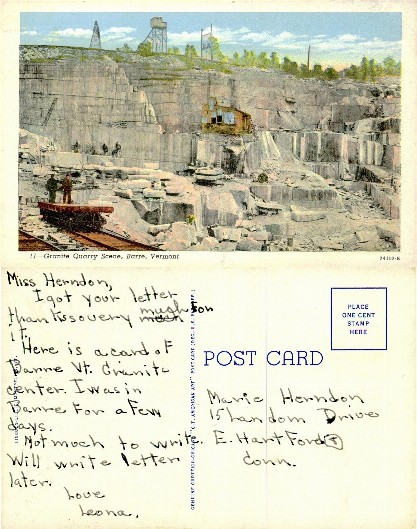 11—Granite Quarry Scene, Barre, Vermont
Miss Herndon,
I got your letter
thanks so very much for
it.
Here is a card of
Barre Vt. Granite
center. I was in
Barre for a few
days.
Not much to write.
Will write letter
later.
Love
Leona.
POST CARD
PLACE
ONE CENT
STAMP
HERE
Marie Herndon
15 Landom Drive
E. Hartford
Conn.